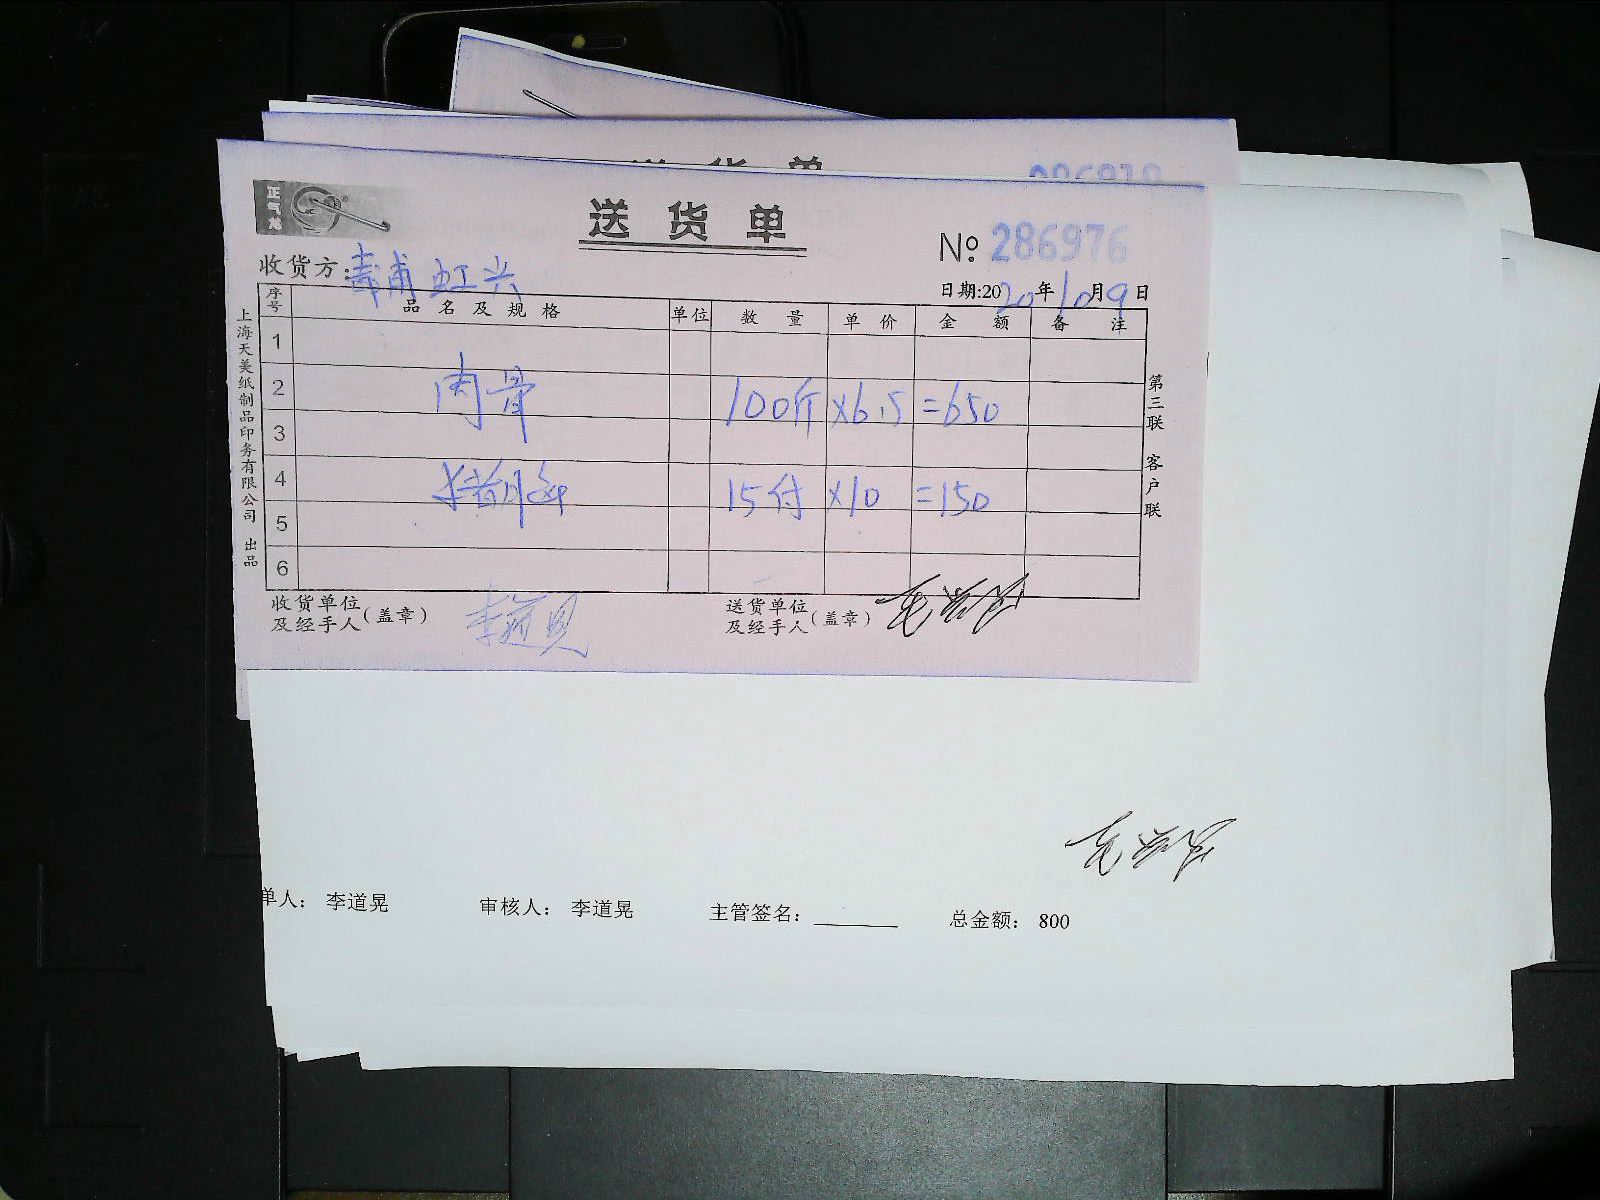 送 货 单
正气龙
送 货 单
№ 286976
收货方: 青浦虹兴
日期:2020年10月9日
序号 品名及规格 单位 数量 单价 金额 备注
1
2 肉骨 100斤 ×6.5 =650
3
4 15付 ×10 =150
5
6
收货单位及经手人(盖章) 李道晃
送货单位及经手人(盖章)
上海天美纸制品印务有限公司 出品
第三联 客户联
单人: 李道晃 审核人: 李道晃 主管签名: 总金额: 800